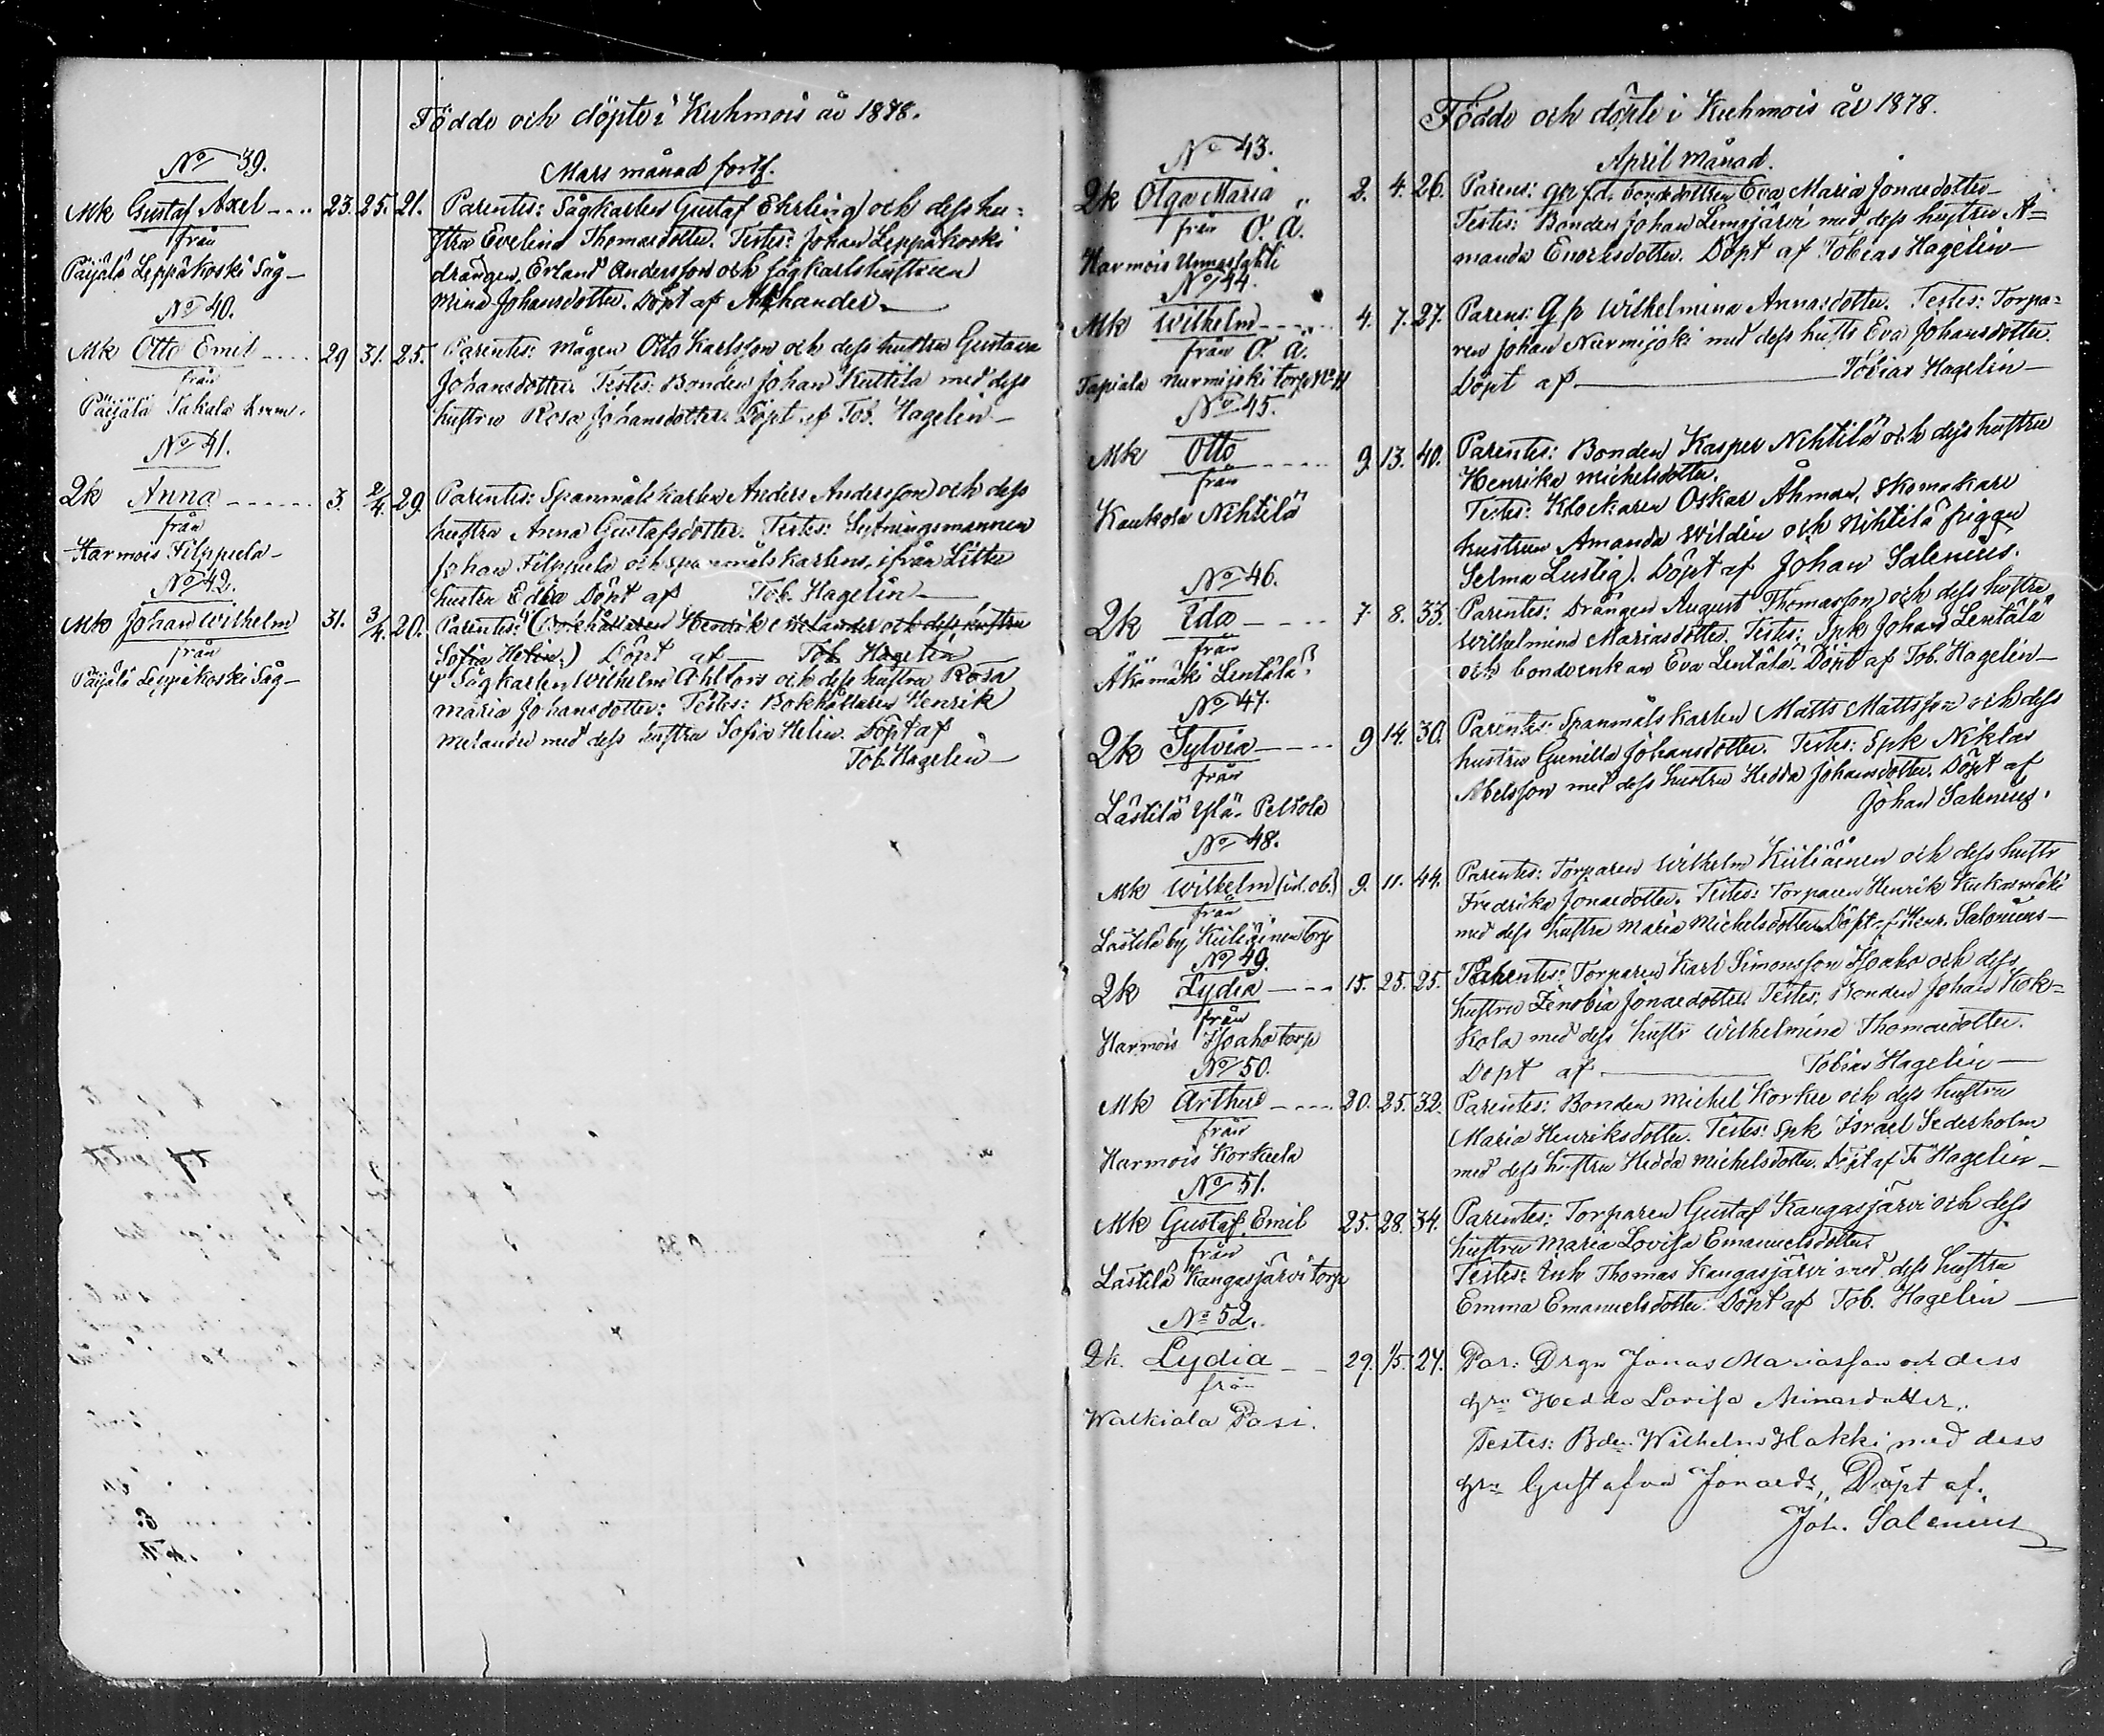 Födde och döpte i Kuhmois år 1878.
Mars månad forts.
No 39.
Mk Gustaf Axel - - - 23. 25. 21. Parentes: Sågkarlen Gustaf Ehrling och dess hu-
från
stru Evelina Thomasdotter. Testes: Johan Leppäkoski
Päijälä Leppäkoski Såg -
drängen Erland Andersson och sågkarlshustrun
Mina Johansdotter. Döpt af
No 40.
Mk Otto Emil - - - 29 31. 25. Parentes: Mågen Otto Karlsson och dess hustru Gustava
från
Johansdotter. Testes: Bonden Johan Kuttila med dess
Päijälä Takala hem.
hustru Rosa Johansdotter. Döpt af Tob. Hagelin -
No 41.
Qk Anna - - - - - 3. 2/4. 29. Parentes: Spanmåls karlen Anders Andersson och dess
från
hustru Anna Gustafsdotter. Testes: Sytningsmannen
Harmois Filppula -
Johan Filppula och spanmålskarlens, ifrån
hustru Edla Döpt af Tob. Hagelin -
No 42.
Mk Johan Wilhelm 31. 3/4. 20. Parentes: (Bokhållaren Henrik Melander och dess hustru
från
Sofia Helin.) Döpt af Tob. Hagelin
Päijälä Leppäkoski Såg -
Sågkarlen Wilhelm Ahlfors och dess hustru Rosa
Maria Johansdotter: Testes: Bokhållaren Henrik
Melander med dess hustru Sofia Helin. Döpt af
Tob. Hagelin -
Födde och döpte i Kuhmois år 1878.
April månad.
No 43.
Qk Olga Maria " 2. 4. 26. Parens: qp f.d. bondedottren Eva Maria Jonasdotter -
från O. ä.
Testes: Bonden Johan Lemsjärvi med dess hustru A=
Harmois Unnaslahti
manda Enoksdotter. Döpt af Tobias Hagelin -
No 44.
Mk Wilhelm - - - - 4. 7. 27. Parens: Qp Wilhelmina Annasdotter. Testes: Torpa=
från O. ä.
ren Johan Nurmijoki med dess hustr Eva Johansdotter.
Tapiala Nurmijoki torp
Döpt af - Tobias Hagelin -
No 45.
Mk Otto - - - - 9. 13. 40. Parentes: Bonden Kasper Nihtilä och dess hustru
från
Henrika Michelsdotter.
Kaukola Nihtilä
Testes: Klockaren Oskar Åhman, skomakare
hustrun Amanda Wildin och Nihtilä pigan
Selma Lustig). Döpt af Johan Salenius.
No 46.
Qk Ida - - - - 7 8. 33. Parentes: Drängen August Thomasson och dess hustru
från
Wilhelmina Mariasdotter. Testes: Spk Johan Lentälä
Äkämäki Lentälä.
och bondeenkan Eva Lentälä. Döpt af Tob. Hagelin -
No 47.
Qk Sylvia - - - - 9 14. 30. Parentes: Spanmåls karlen Matts Mattsson och dess
från
hustru Gunilla Johansdotter. Testes: Spk Niklas
Lästilä Ylä-Peltola
Abelsson med dess hustru Hedda Johansdotter. Döpt af
Johan Salenius.
No 48.
Mk Wilhelm 9. 11. 44. Parentes: Torparen Wilhelm Kiiliäinen och dess hustr
från
Fredrika Jonasdotter. Testes: Torparen Henrik Kukasmäki
Lästilä by Kiiliäinen torp
med dess hustru Maria Michelsdotter. Döpt af Henr. Salonius -
No 49.
Qk Lydia - - - 15. 25. 25. Parentes: Torparen Karl Simonsson Isoaho och dess
från
hustru Zenobia Jonasdotter. Testes: Bonden Johan Kok=
Harmois Isoaho torp
kola med dess hustr Wilhelmina Thomasdotter.
Döpt af - Tobias Hagelin -
No 50.
Mk Arthur - - - 20. 25. 32. Parentes: Bonden Michel Korkee och dess hustru
från
Maria Henriksdotter. Testes: Spk Israel Sederholm
Harmois Korkeela
med dess hustru Hedda Michelsdotter. Döpt af T. Hagelin -
No 51.
Mk Gustaf Emil 25. 28. 34. Parentes: Torparen Gustaf Kangasjärvi och dess
från
hustru Maria Lovisa Emanuelsdotter.
Lästilä Kangasjärvi torp
Testes: Inh Thomas Kangasjärvi med dess hustru
Emma Emanuelsdotter. Döpt af Tob. Hagelin -
No 52.
Qk. Lydia - - 29. 1/5. 24. Par: Drgn Jonas Mariasson och dess
från
hru Hedda Lovisa Minasdotter.
Walkiala Pasi.
Testes: Bdn. Wilhelm Hakki med dess
hru Gustafva Jonasdr, Döpt af.
Joh. Salenius